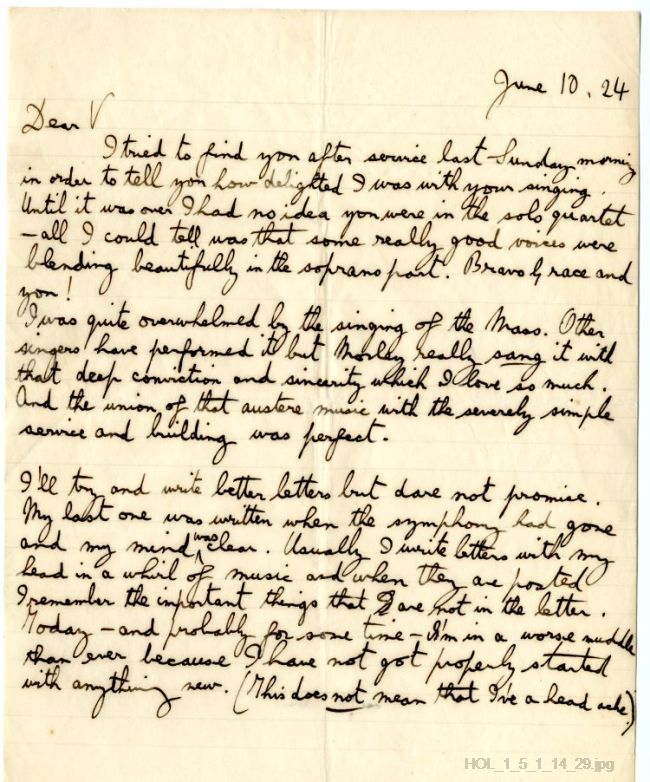 June 10. 24
Dear V
I tried to find you after service last Sunday morning
in order to tell you how delighted I was with your singing.
Until it was over I had no idea you were in the solo quartet
– all I could tell was that some really good voices were
blending beautifully in the soprano part. Bravo Grace and
you!
I was quite overwhelmed by the singing of the Mass. Other
singers have performed it but Morley really sang it with
that deep conviction and sincerity which I love so much.
And the union of that austere music with the severely simple
service and building was perfect.
I'll try and write better letters but dare not promise.
My last one was written when the symphony had gone
and my mind was clear. Usually I write letters with my
head in a whirl of music and when they are posted
I remember the important things that are not in the letter.
Today – and probably for some time – I'm in a worse muddle
than ever because I have not got properly started
with anything new. (This does not mean that I've a head ache)
HOL_1_5_1_14_29.jpg